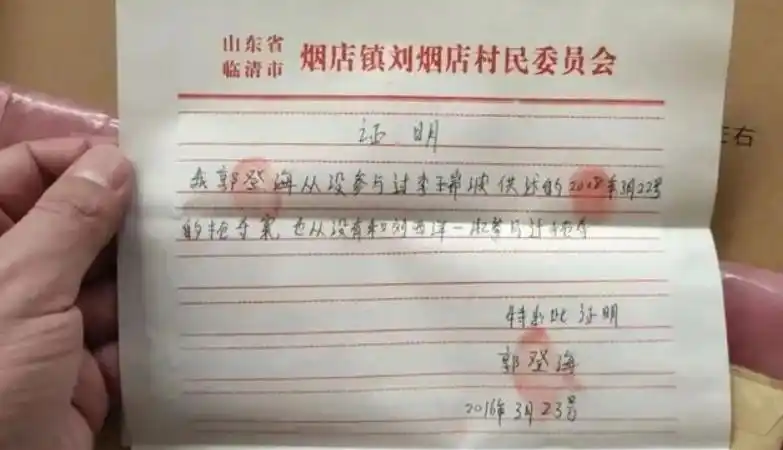 山东省
临清市 烟店镇刘烟店村民委员会
证明
我郭登海从没参与过李玉希坡供述的2008年3月22号
的抢夺案,也从没有和刘西洋一起参与过抢夺
特出此证明
郭登海
2016年3月23号
左右